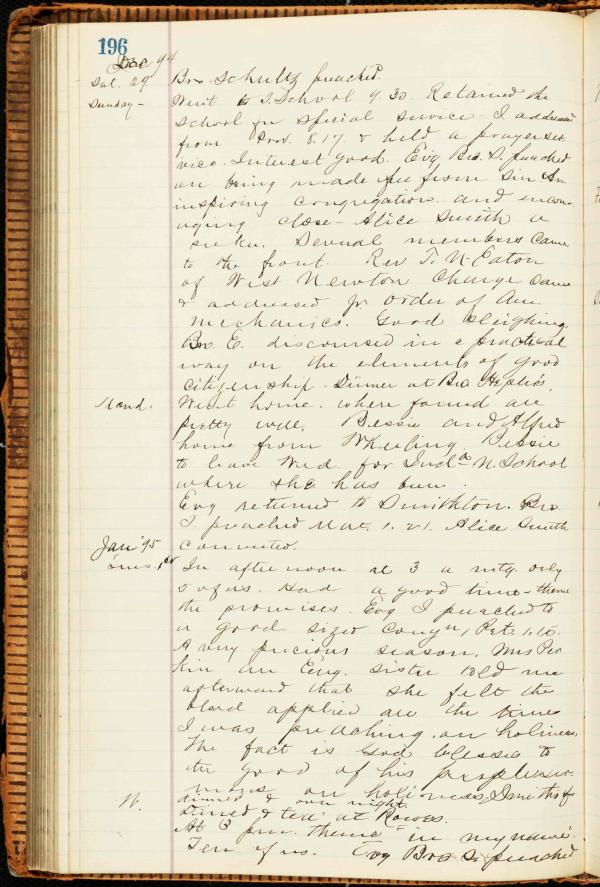 196
Dec 94
Sat. 29 Bro Schultz preached.
Sunday - Went to S. School 9.30 Retained the
school for special service. I addressed
from Prov. 8.17. & held a prayer ser
vice. Interest good. Evg Bro. S. preached
on being made free from sin. An
inspiring congregation and encour
aging close - Alice Smith a
seeker. Several members came
to the front. Rev T. N. Eaton
of West Newton Charge came
& addressed Jr. Order of Am.
mechanics. Good sleighing
Bro. E. discoursed in a practical
way on the elements of good
citizenship. Dinner at Bro
Mond. Went home. where found all
pretty well. Bessie and Alfred
home from Wheeling Bessie
to leave Wed. for Inda N. School
where she has been.
Evg returned to Smithton. Bro
I preached Mat. 1. 21. Alice Smith
converted.
Jan '95
1st In afternoon at 3 a mtg. only
5 of us. Had a good time - theme
the promises. Evg I preached to
a good sized congn, 1 Pet. 1.15.
A very precious season. Mrs Per
kin an Eng. sister told me
afterward that she felt the
blood applied all the time
I was preaching on holiness.
The fact is God blesses to
the good of his people ser-
mons on holiness.
dinner & over night
& tea at
At 3 p.m. theme "in my name".
Ten of us. Evg Bro S. preached